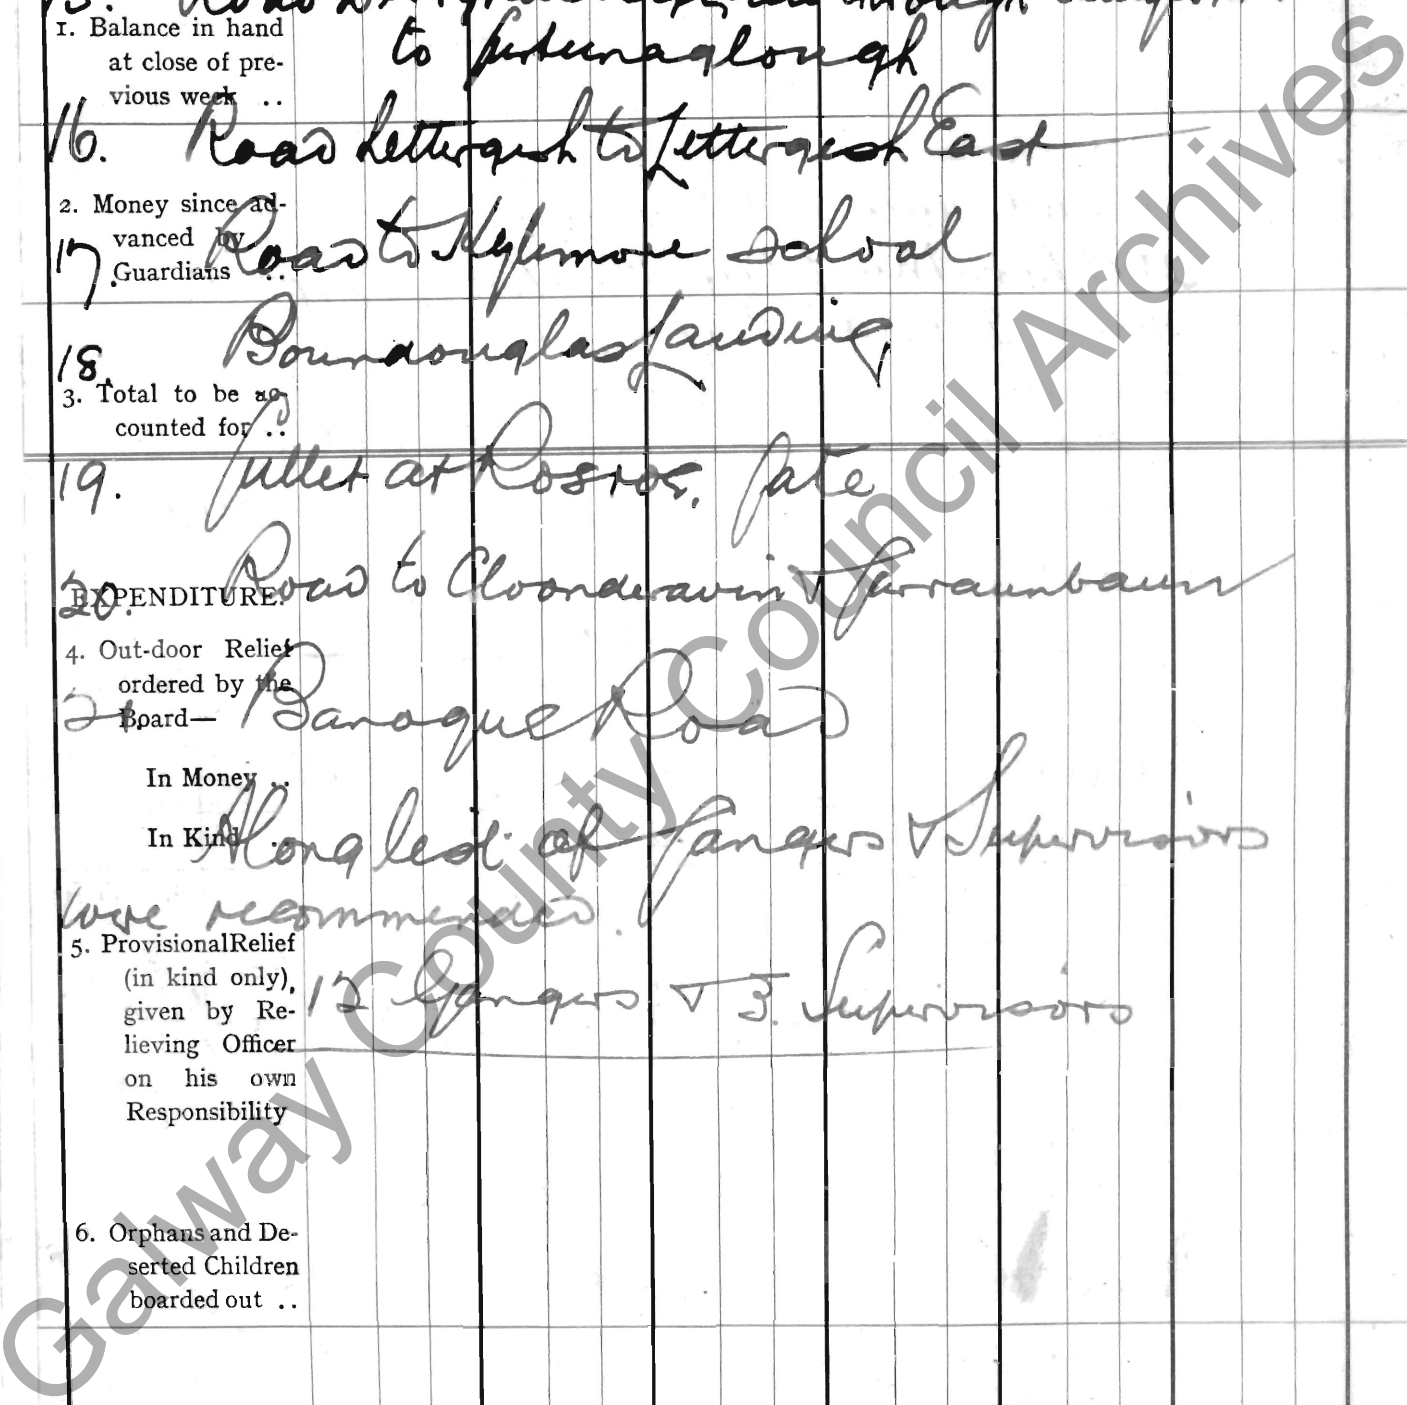 15. Road through
1. Balance in hand
at close of pre-
vious week ..
to
16. Road Lettergesh to Lettergesh East
2. Money since ad-
vanced by
Guardians ..
17. Road to Kylemore school
18. Bounaouglas Landing
3. Total to be ac-
counted for ..
19. Gullet at Rosroe, Gate
20. Road to Cloonderavin & Garraunbaun
EXPENDITURE.
4. Out-door Relief
ordered by the
Board—
21. Banogue Road
In Money ..
In Kind ..
A long list of Gangers & Supervisors
were recommended.
5. Provisional Relief
(in kind only),
given by Re-
lieving Officer
on his own
Responsibility
12 Gangers & 3. Supervisors
6. Orphans and De-
serted Children
boarded out ..
Galway County Council Archives